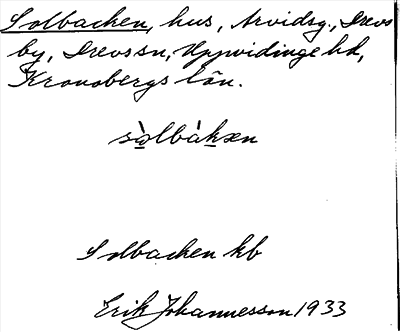 Solbacken, hus, Arvidsg., Drevs
by, Drevs sn, Uppvidinge hd,
Kronobergs län.
sòlbàkæn
Solbacken kb
Erik Johannesson 1933